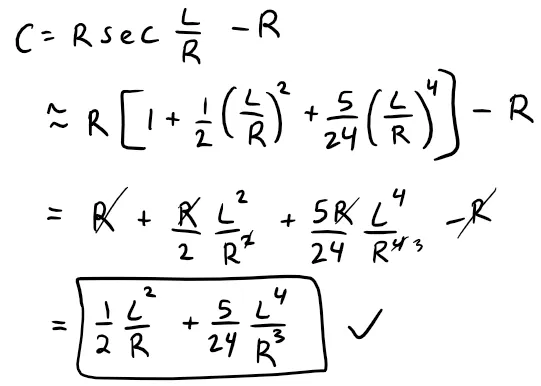 C = R sec L/R - R
≈ R [1 + 1/2 (L/R)^2 + 5/24 (L/R)^4] - R
= R + R/2 L^2/R^2 + 5R/24 L^4/R^4 3 - R
= 1/2 L^2/R + 5/24 L^4/R^3 ✓